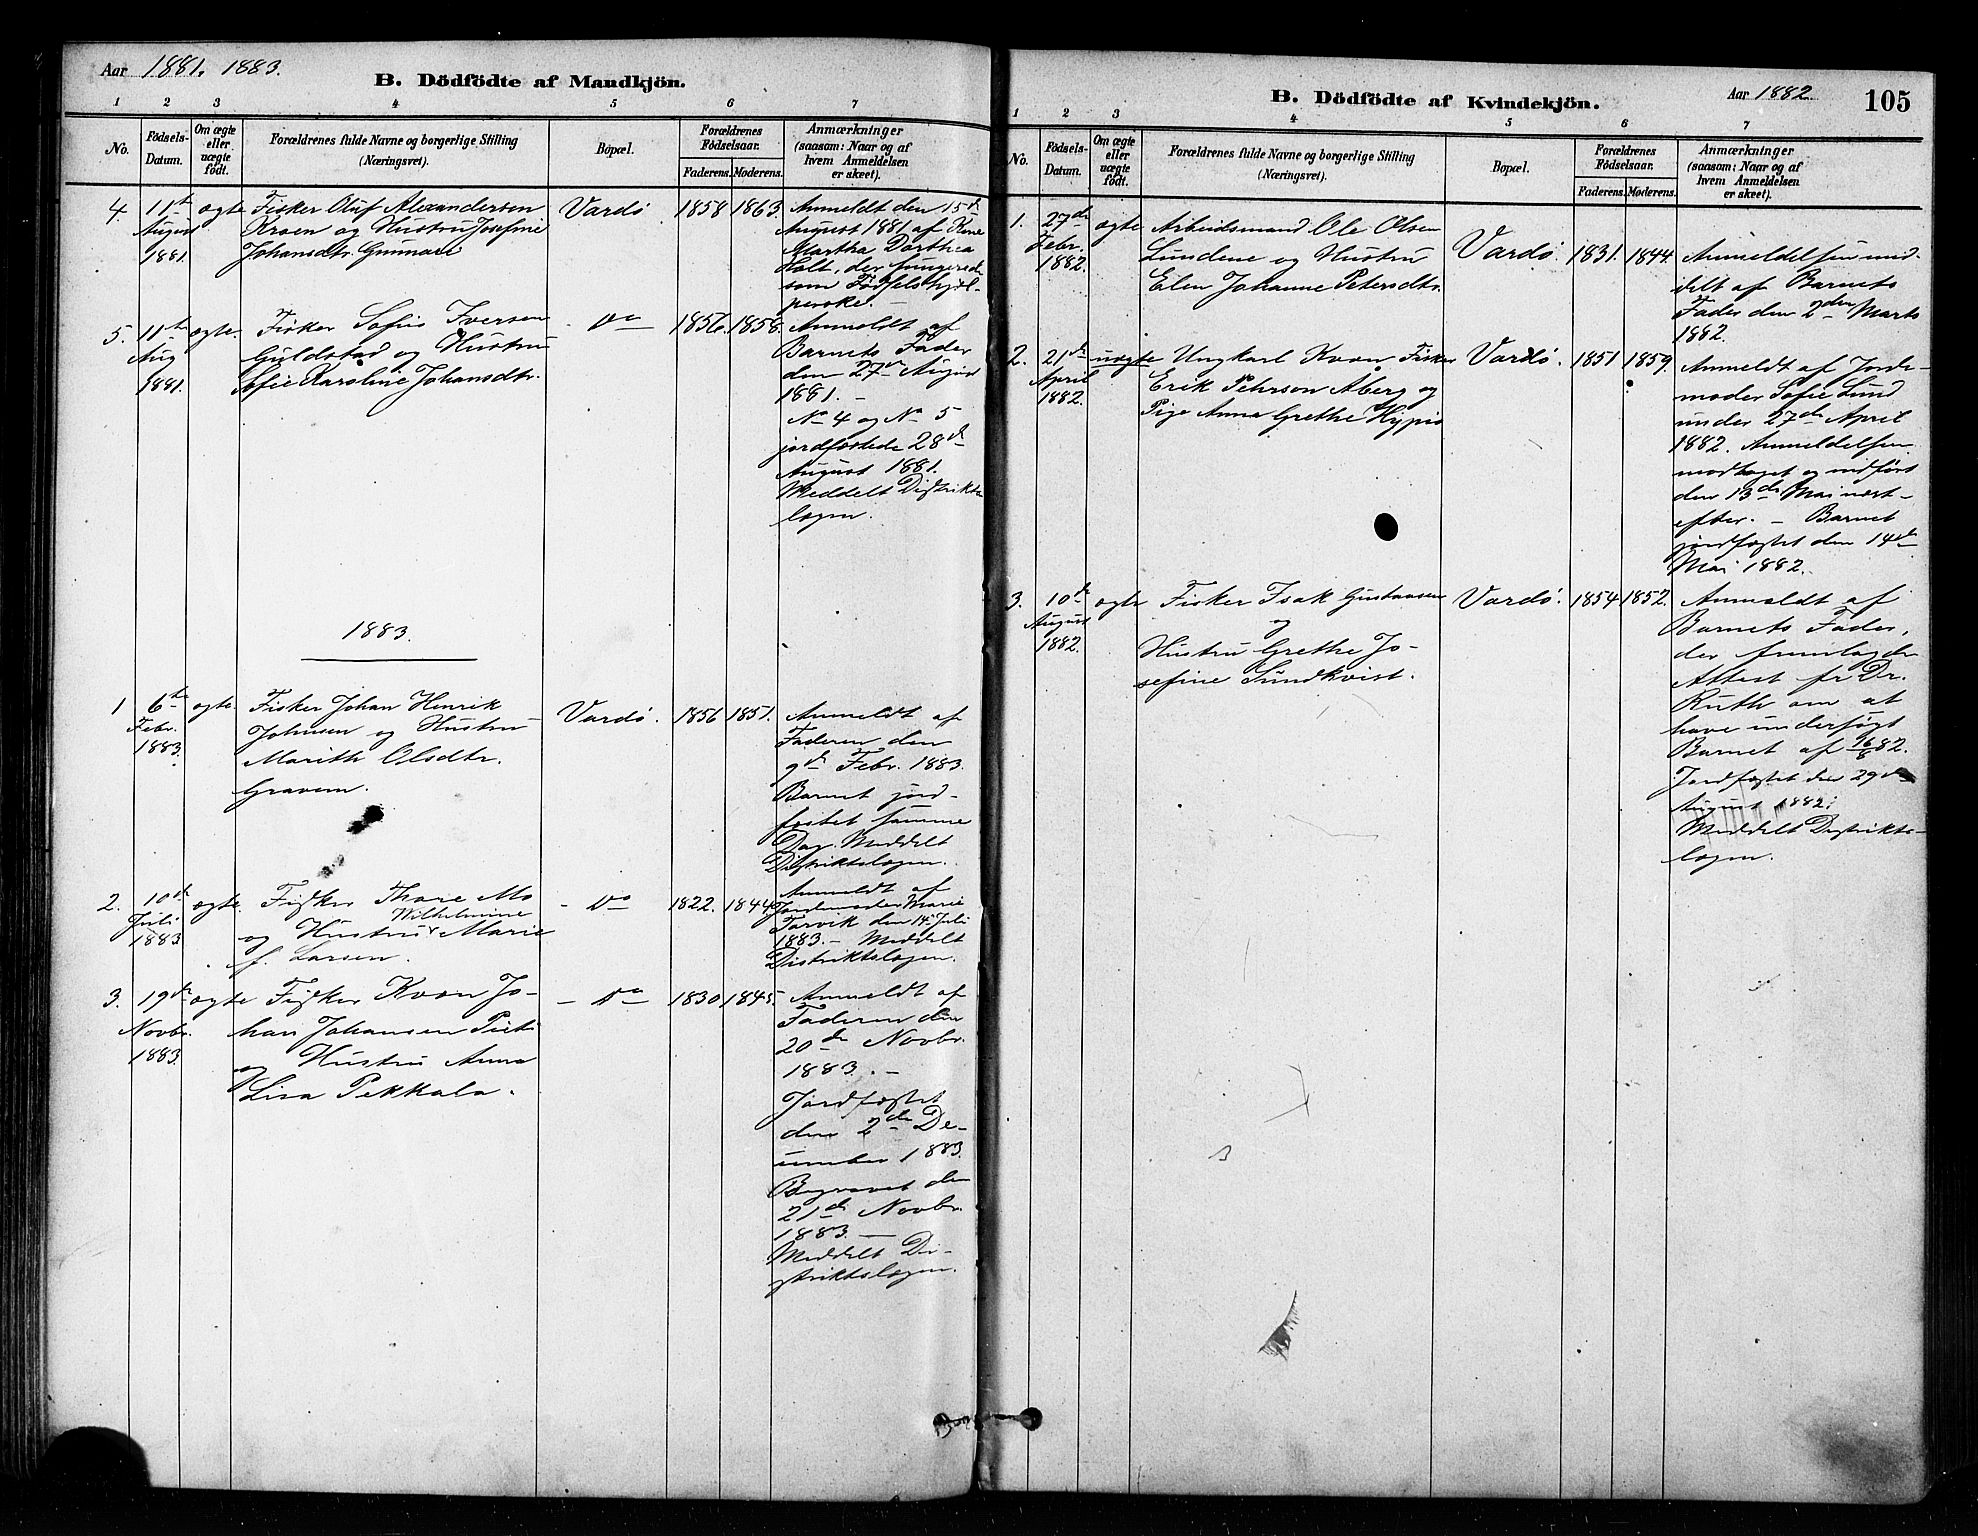 Aar 1881. 1883.
B. Dödfödte af Mandkjön.
1 2 3 4 5 6 7
No.
Födsels-
Datum.
Om ægte
eller
uægte
födt.
Forældrenes fulde Navne og borgerlige Stilling
(Næringsvei).
Bopæl.
Forældrenes
Födselsaar.
Faderens. Moderens.
Anmærkninger
(saasom: Naar og af
hvem Anmeldelsen
er skeet).
4
11te
August
1881.
ægte
Fisker Oluf Alexandersen
Kroen og Hustru Josefine
Johansdtr.
Vardö
1858 1863.
Anmeldt den 15de
August 1881 af Kone
Martha Dorthea
Holt, der fungerede
som Födselshjæl-
perske. –
5.
11te
Aug
1881.
ægte.
Fisker Sofus Iversen
Guldstad og Hustru
Sofie Karoline Johansdtr.
- Do
1856. 1858.
Anmeldt af
Barnets Fader
den 27de August
1881. –
No 4 og No 5
jordfæstede 28de
August 1881.
Meddelt Distrikts
lægen.
1883.
1
6te
Febr.
1883.
ægte.
Fisker Johan Henrik
Johnsen og Hustru
Marith Olsdtr.
Gravem.
Vardö.
1856 1851.
Anmeldt af
Faderen den
9de Febr. 1883.
Barnet jord-
fæstet samme
Dag. Meddelt
Distriktslægen.
2.
10de
Juli
1883
ægte.
Fisker Thore Mo
Wilhelmine
og Hustru Marie
f. Larsen.
- Do
1822. 1844.
Anmeldt af
Jordemoder Marie
Torvik den 14 Juli
1883. – Meddelt
Distriktslægen.
3.
19de
Novbr.
1883.
ægte
Fisker Kvæn Jo-
han Johansen
og Hustru Anna
Lisa Pekkala.
- Do
1830 1845.
Anmeldt af
Faderen den
20de Novbr.
1883. –
Jordfæstet
den 2de De-
cember 1883.
Begravet den
21de Novbr.
1883. –
Meddelt Di-
striktslægen.
B. Dödfödte af Kvindekjön.
Aar 1882.
105
1 2 3 4 5 6 7
No.
Födsels-
Datum.
Om ægte
eller
uægte
födt.
Forældrenes fulde Navne og borgerlige Stilling
(Næringsvei).
Bopæl.
Forældrenes
Födselsaar.
Faderens. Moderens.
Anmærkninger
(saasom: Naar og af
hvem Anmeldelsen
er skeet).
1.
27de
Febr.
1882.
ægte
Arbeidsmand Ole Olsen
Lundene og Hustru
Elen Johanne Petersdtr.
Vardö.
1831. 1844.
Anmeldelsen med-
delt af Barnets
Fader den 2den Marts
1882.
2.
21de
April
1882.
uægte
Ungkarl Kvæn Fisker
Erik Pehrson Åberg og
Pige Anna Grethe
Vardö.
1851 1859.
Anmeldt af Jorde-
moder Sofie Lund
under 27de April
1882. Anmeldelsen
modtaget og indfört
den 13de Mai næst-
efter. – Barnet
jordfæstet den 14de
Mai 1882.
3.
10de
August
1882.
ægte
Fisker Isak Gustavsen
og
Hustru Grethe Jo-
sefine Sundkvist.
Vardö.
1854 1852.
Anmeldt af
Barnets Fader,
der fremlagde
Attest fr Dr.
Ruth om at
have undersögt
Barnet af 16/8 82.
Jordfæstet den 29de
August 1882.
Meddelt Distrikts-
lægen.